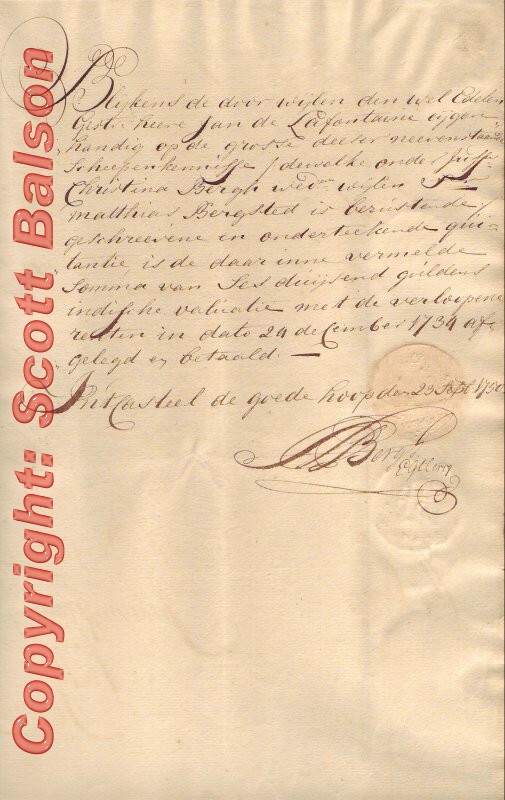 Blijkens de door wijlen den wel Edelen
Gestr: heere Jan de Lafontaine eijgen-
handig op de groste deeser neevenstaande
Scheepenkennisse / dewelke onder Juffr:
Christina Bergh wed: wijlen Sr:
Matthias Bergsted is berustende /
geschreevene en onderteekende qui-
tantie, is de daar inne vermelde
Somma van Ses duijsend guldens
indische valuatie met de verloopene
renten in dato 24 december 1734 af-
gelegd en betaald. —
In't Casteel de goede hoop den 23 Sept: 1750
Bergh
Copyright: Scott Balson